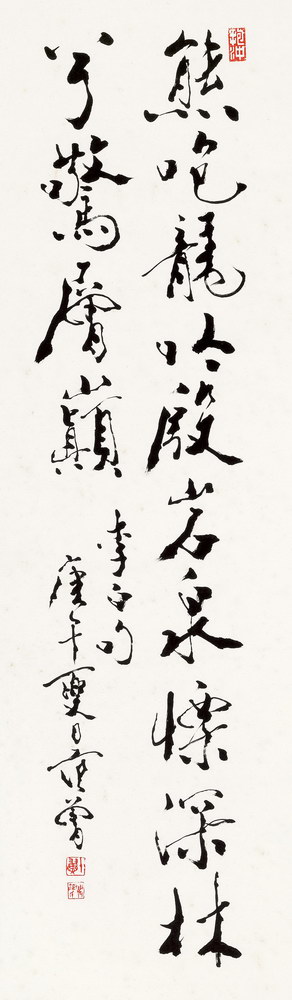 熊咆龍吟殷岩泉慄深林
兮驚層巔
李白句
庚午夏日范曾